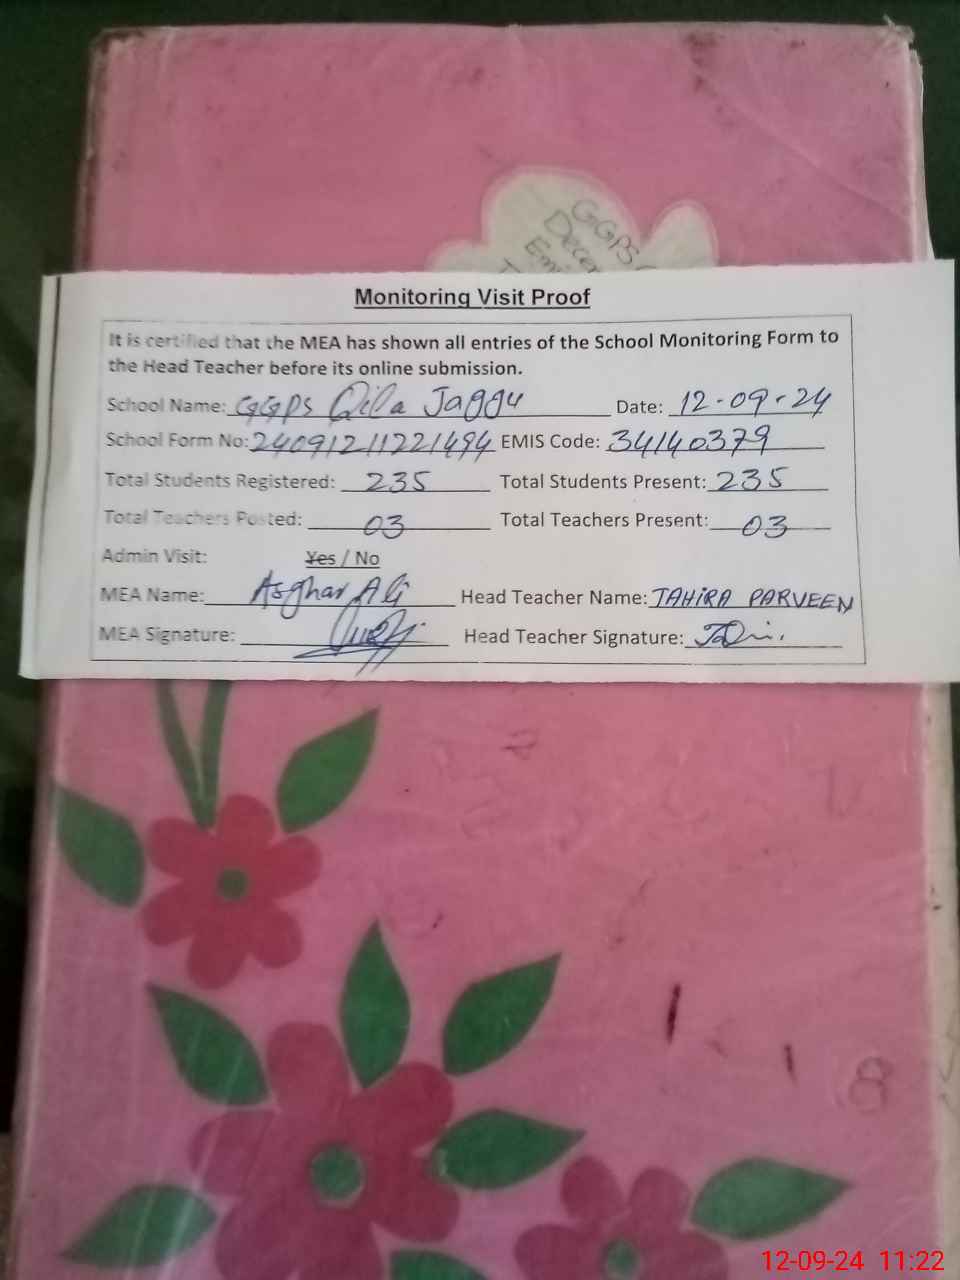 GGPS
Monitoring Visit Proof
It is certified that the MEA has shown all entries of the School Monitoring Form to
the Head Teacher before its online submission.
School Name: GGPS Qila Jaggu Date: 12-09-24
School Form No: 24091211221494 EMIS Code: 34140379
Total Students Registered: 235 Total Students Present: 235
Total Teachers Posted: 03 Total Teachers Present: 03
Admin Visit: Yes / No
MEA Name: Asghar Ali Head Teacher Name: TAHIRA PARVEEN
MEA Signature: Head Teacher Signature:
12-09-24 11:22